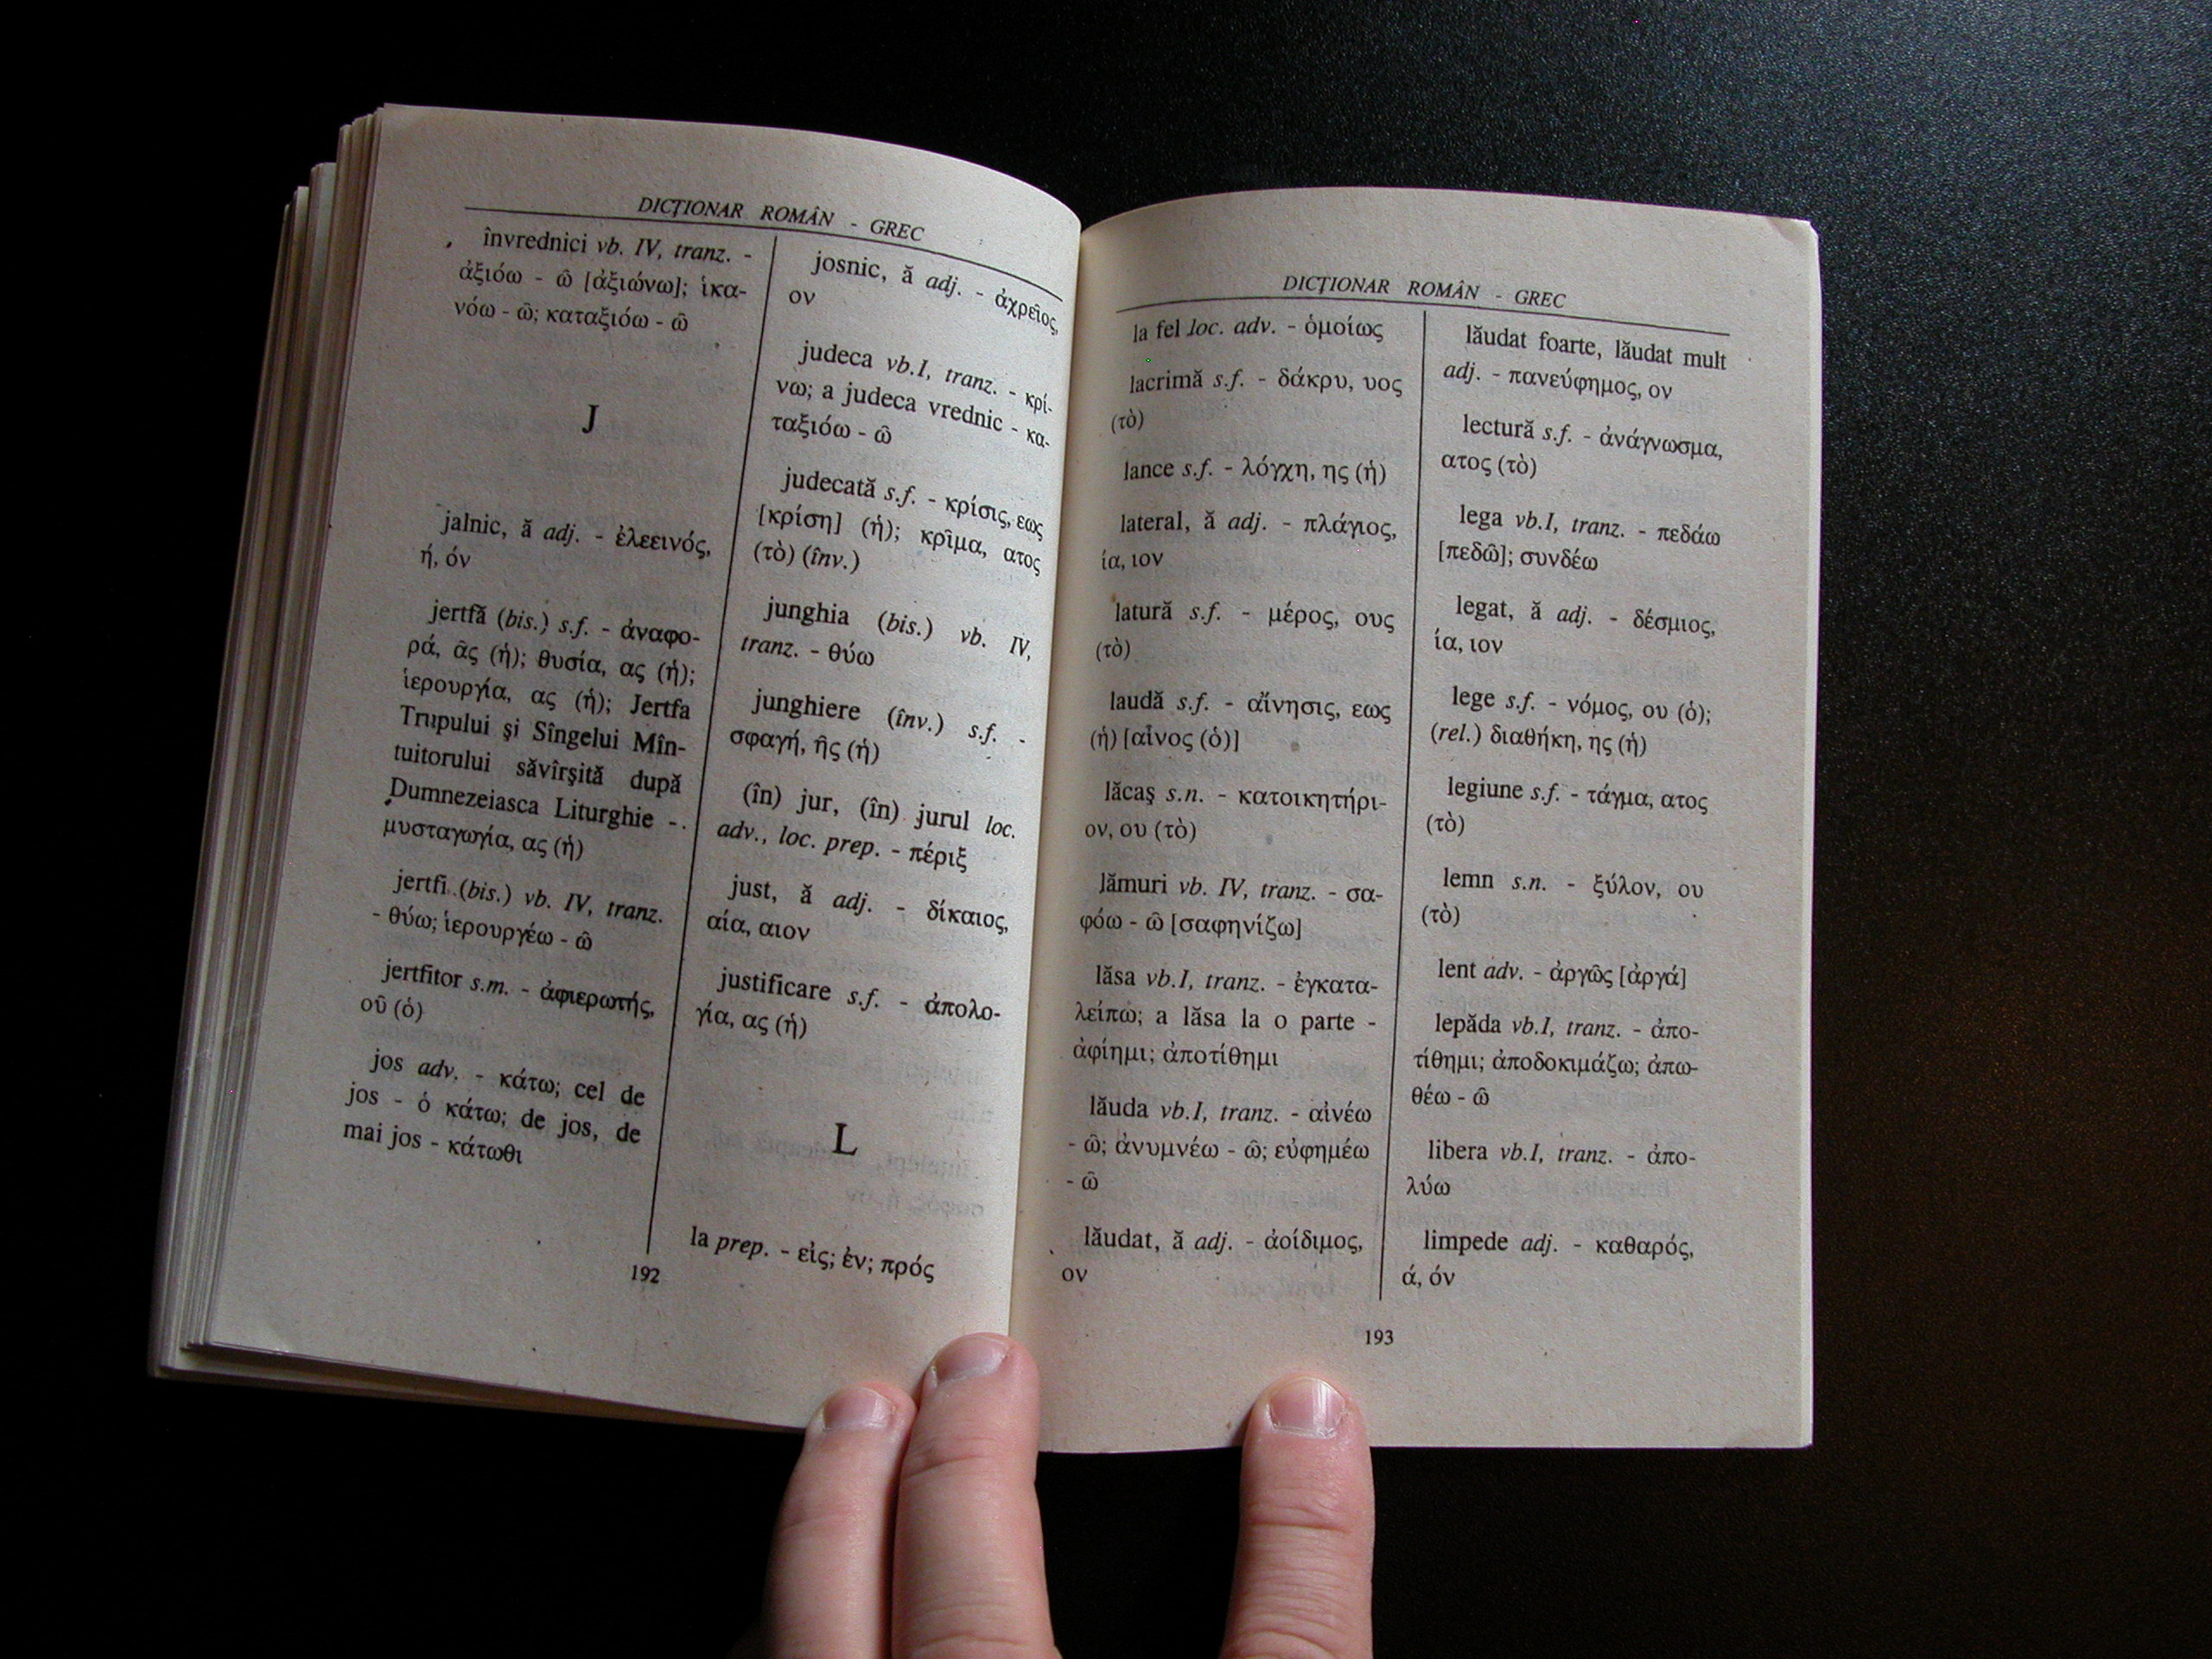 DICŢIONAR ROMÂN - GREC
învrednici vb. IV, tranz. -
ἀξιόω - ῶ [ἀξιώνω]; ἱκα-
νόω - ῶ; καταξιόω - ῶ
J
jalnic, ă adj. - ἐλεεινός,
ή, όν
jertfă (bis.) s.f. - ἀναφο-
ρά, ᾶς (ἡ); θυσία, ας (ἡ);
ἱερουργία, ας (ἡ); Jertfa
Trupului şi Sîngelui Mîn-
tuitorului săvîrşită după
Dumnezeiasca Liturghie -
μυσταγωγία, ας (ἡ)
jertfi (bis.) vb. IV, tranz.
- θύω; ἱερουργέω - ῶ
jertfitor s.m. - ἀφιερωτής,
οῦ (ὁ)
jos adv. - κάτω; cel de
jos - ὁ κάτω; de jos, de
mai jos - κάτωθι
josnic, ă adj. - ἀχρεῖος,
ον
judeca vb.I, tranz. - κρί-
νω; a judeca vrednic - κα-
ταξιόω - ῶ
judecată s.f. - κρίσις, εως
[κρίση] (ἡ); κρῖμα, ατος
(τὸ) (înv.)
junghia (bis.) vb. IV,
tranz. - θύω
junghiere (înv.) s.f. -
σφαγή, ῆς (ἡ)
(în) jur, (în) jurul loc.
adv., loc. prep. - πέριξ
just, ă adj. - δίκαιος,
αία, αιον
justificare s.f. - ἀπολο-
γία, ας (ἡ)
L
la prep. - εἰς; ἐν; πρός
192
DICŢIONAR ROMÂN - GREC
la fel loc. adv. - ὁμοίως
lacrimă s.f. - δάκρυ, υος
(τὸ)
lance s.f. - λόγχη, ης (ἡ)
lateral, ă adj. - πλάγιος,
ία, ιον
latură s.f. - μέρος, ους
(τὸ)
laudă s.f. - αἴνησις, εως
(ἡ) [αἶνος (ὁ)]
lăcaş s.n. - κατοικητήρι-
ον, ου (τὸ)
lămuri vb. IV, tranz. - σα-
φόω - ῶ [σαφηνίζω]
lăsa vb.I, tranz. - ἐγκατα-
λείπω; a lăsa la o parte -
ἀφίημι; ἀποτίθημι
lăuda vb.I, tranz. - αἰνέω
- ῶ; ἀνυμνέω - ῶ; εὐφημέω
- ῶ
lăudat, ă adj. - ἀοίδιμος,
ον
lăudat foarte, lăudat mult
adj. - πανεύφημος, ον
lectură s.f. - ἀνάγνωσμα,
ατος (τὸ)
lega vb.I, tranz. - πεδάω
[πεδῶ]; συνδέω
legat, ă adj. - δέσμιος,
ία, ιον
lege s.f. - νόμος, ου (ὁ);
(rel.) διαθήκη, ης (ἡ)
legiune s.f. - τάγμα, ατος
(τὸ)
lemn s.n. - ξύλον, ου
(τὸ)
lent adv. - ἀργῶς [ἀργά]
lepăda vb.I, tranz. - ἀπο-
τίθημι; ἀποδοκιμάζω; ἀπω-
θέω - ῶ
libera vb.I, tranz. - ἀπο-
λύω
limpede adj. - καθαρός,
ά, όν
193